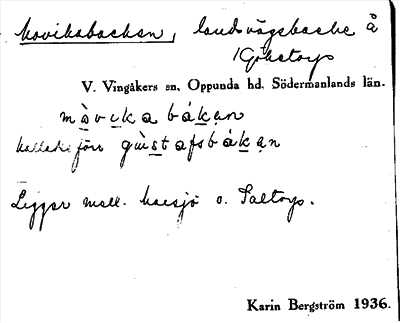 Movikabacken, landsvägsbacke å
Göketorp
V. Vingåkers sn, Oppunda hd. Södermanlands län.
mòvikabákan
kallades förr gùstafsbákan
Ligger mell. Kaesjö o. Saltorp.
Karin Bergström 1936.